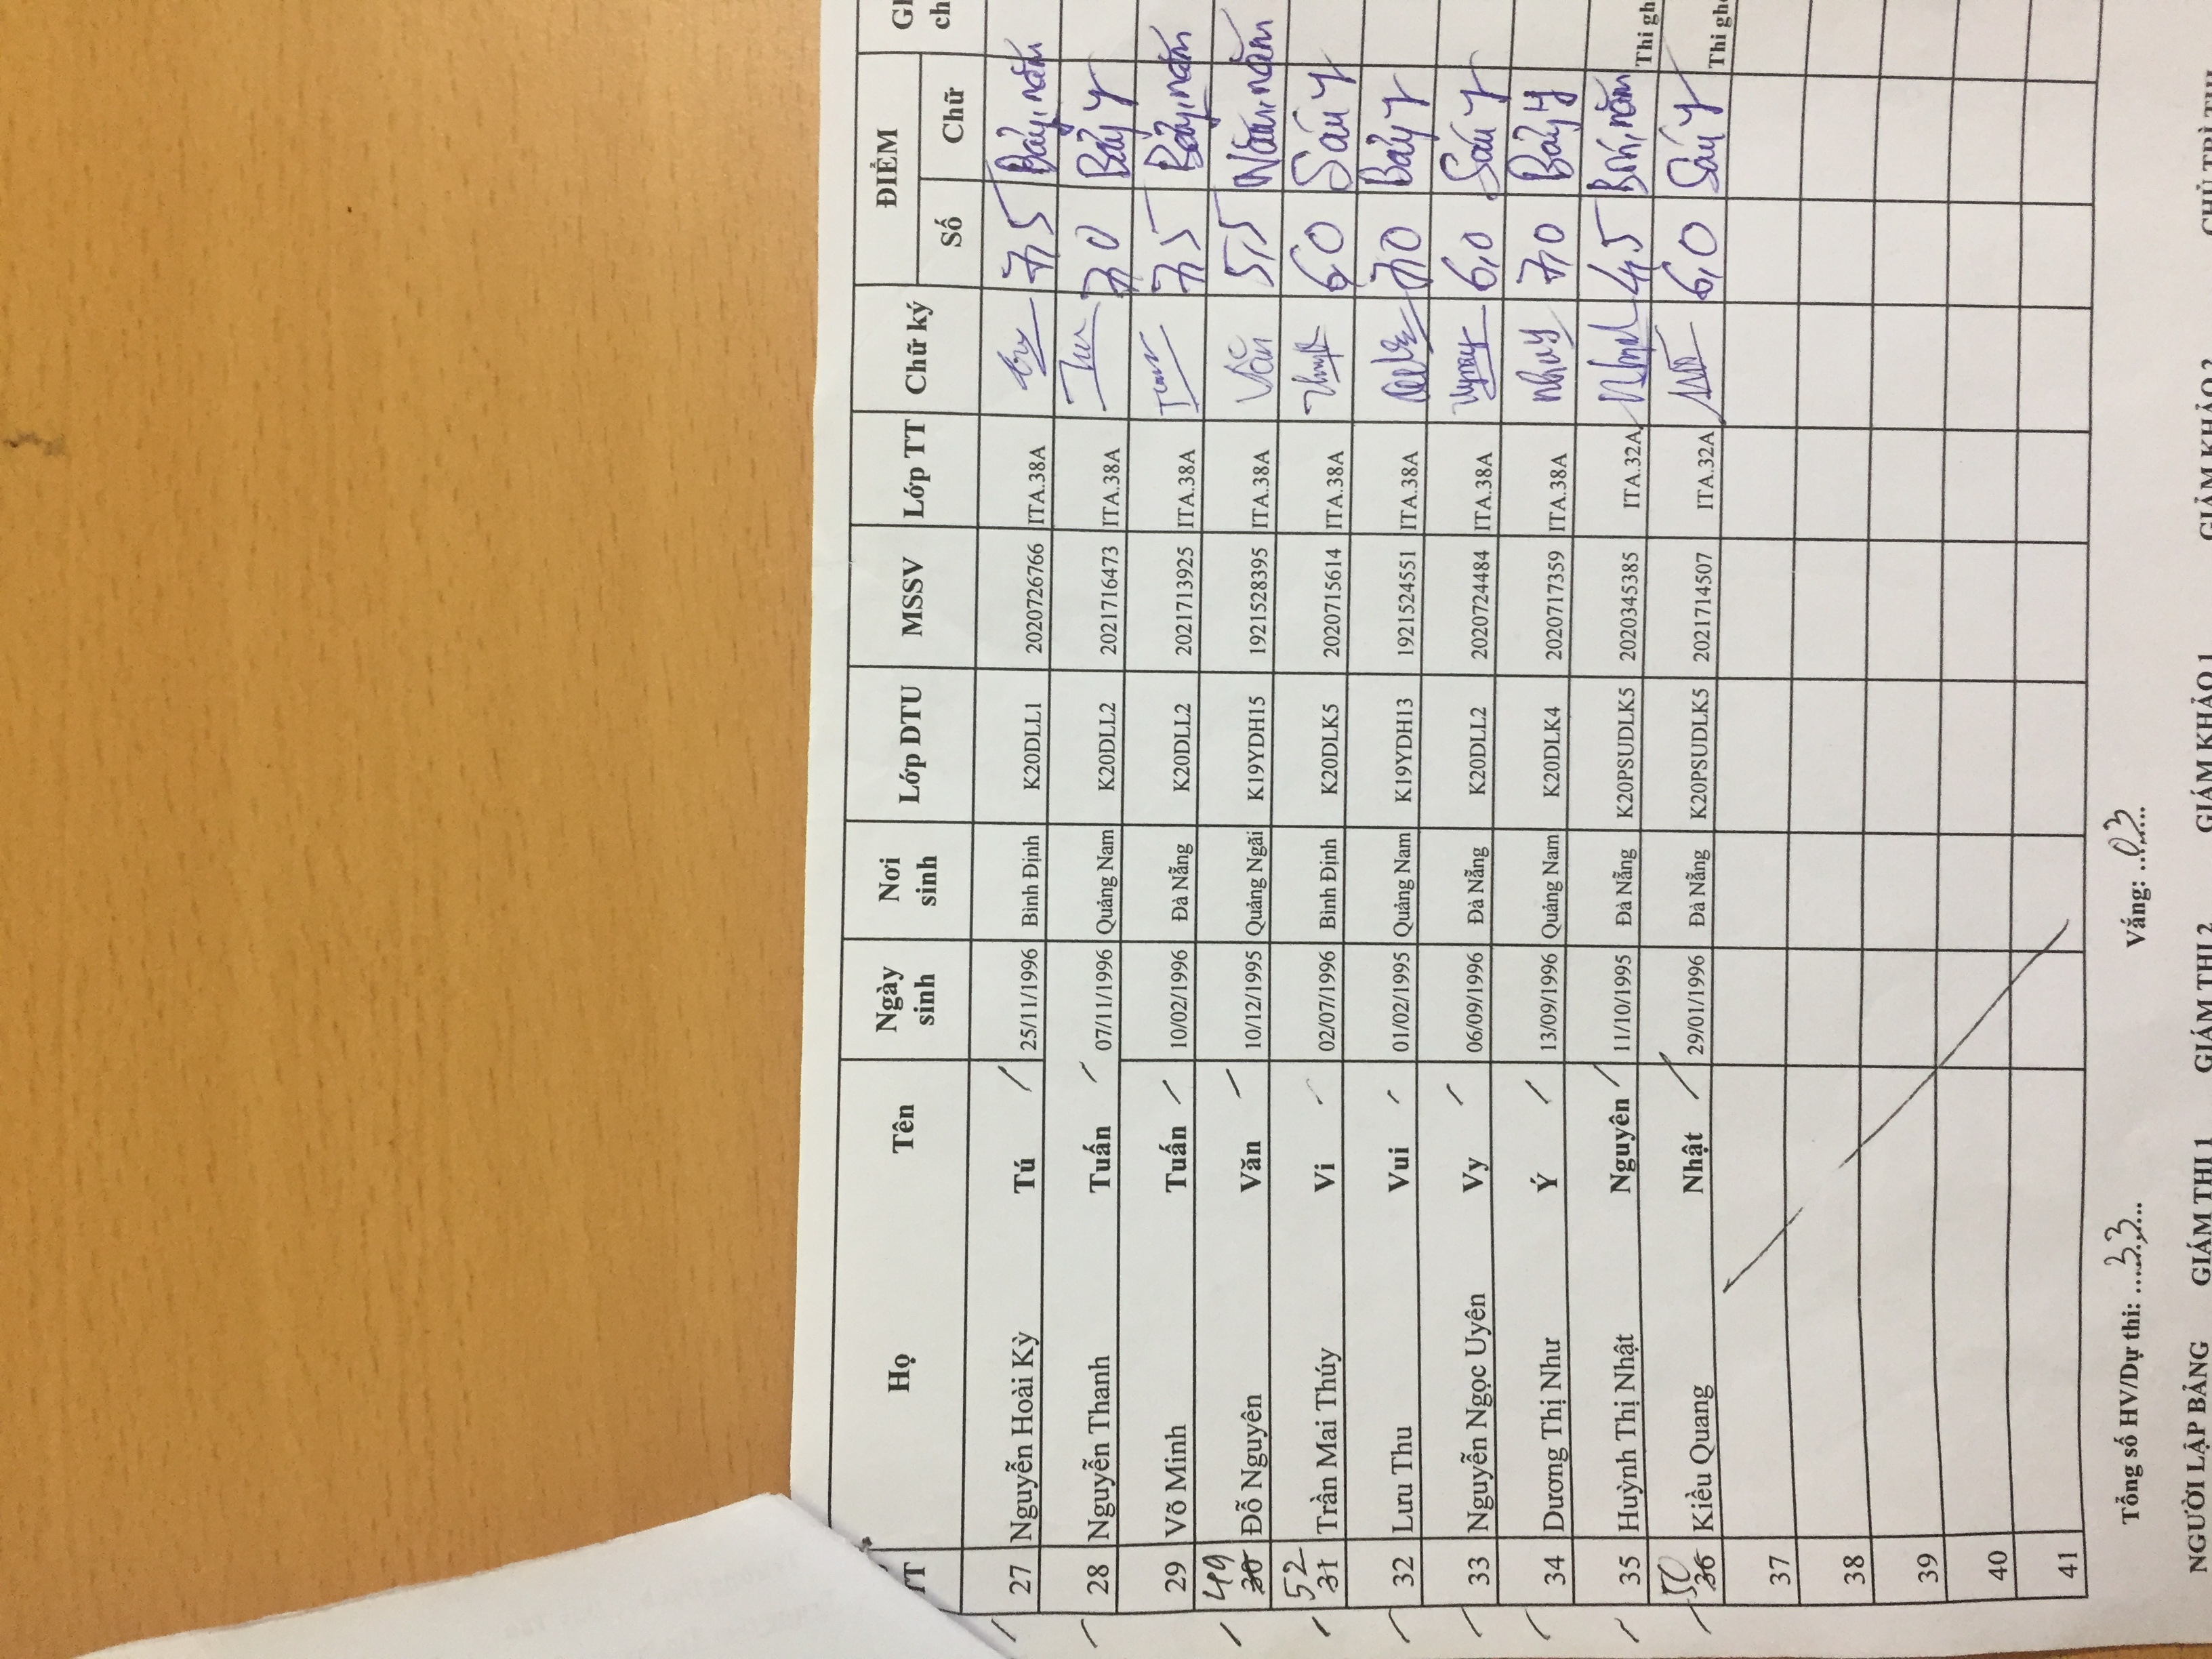 TT Họ Tên Ngày sinh Nơi sinh Lớp DTU MSSV Lớp TT Chữ ký ĐIỂM
Số Chữ
27 Nguyễn Hoài Kỳ Tú 25/11/1996 Bình Định K20DLL1 2020726766 ITA.38A 7,5 Bảy, năm
28 Nguyễn Thanh Tuấn 07/11/1996 Quảng Nam K20DLL2 2021716473 ITA.38A 7,0 Bảy
29 Võ Minh Tuấn 10/02/1996 Đà Nẵng K20DLL2 2021713925 ITA.38A 7,5 Bảy, năm
49 30 Đỗ Nguyên Văn 10/12/1995 Quảng Ngãi K19YDH15 1921528395 ITA.38A Văn 5,5 Năm, năm
52 31 Trần Mai Thúy Vi 02/07/1996 Bình Định K20DLK5 2020715614 ITA.38A 6,0 Sáu
32 Lưu Thu Vui 01/02/1995 Quảng Nam K19YDH13 1921524551 ITA.38A 7,0 Bảy
33 Nguyễn Ngọc Uyên Vy 06/09/1996 Đà Nẵng K20DLL2 2020724484 ITA.38A 6,0 Sáu
34 Dương Thị Như Ý 13/09/1996 Quảng Nam K20DLK4 2020717359 ITA.38A 7,0 Bảy
35 Huỳnh Thị Nhật Nguyên 11/10/1995 Đà Nẵng K20PSUDLK5 2020345385 ITA.32A 4,5 Bốn, năm Thi
50 36 Kiều Quang Nhật 29/01/1996 Đà Nẵng K20PSUDLK5 2021714507 ITA.32A 6,0 Sáu Thi
37
38
39
40
41
Tổng số HV/Dự thi: ...33... Vắng: ...03...
NGƯỜI LẬP BẢNG GIÁM THỊ 1 GIÁM THỊ 2 GIÁM KHẢO 1 GIÁM KHẢO 2 CHỦ TRÌ THI